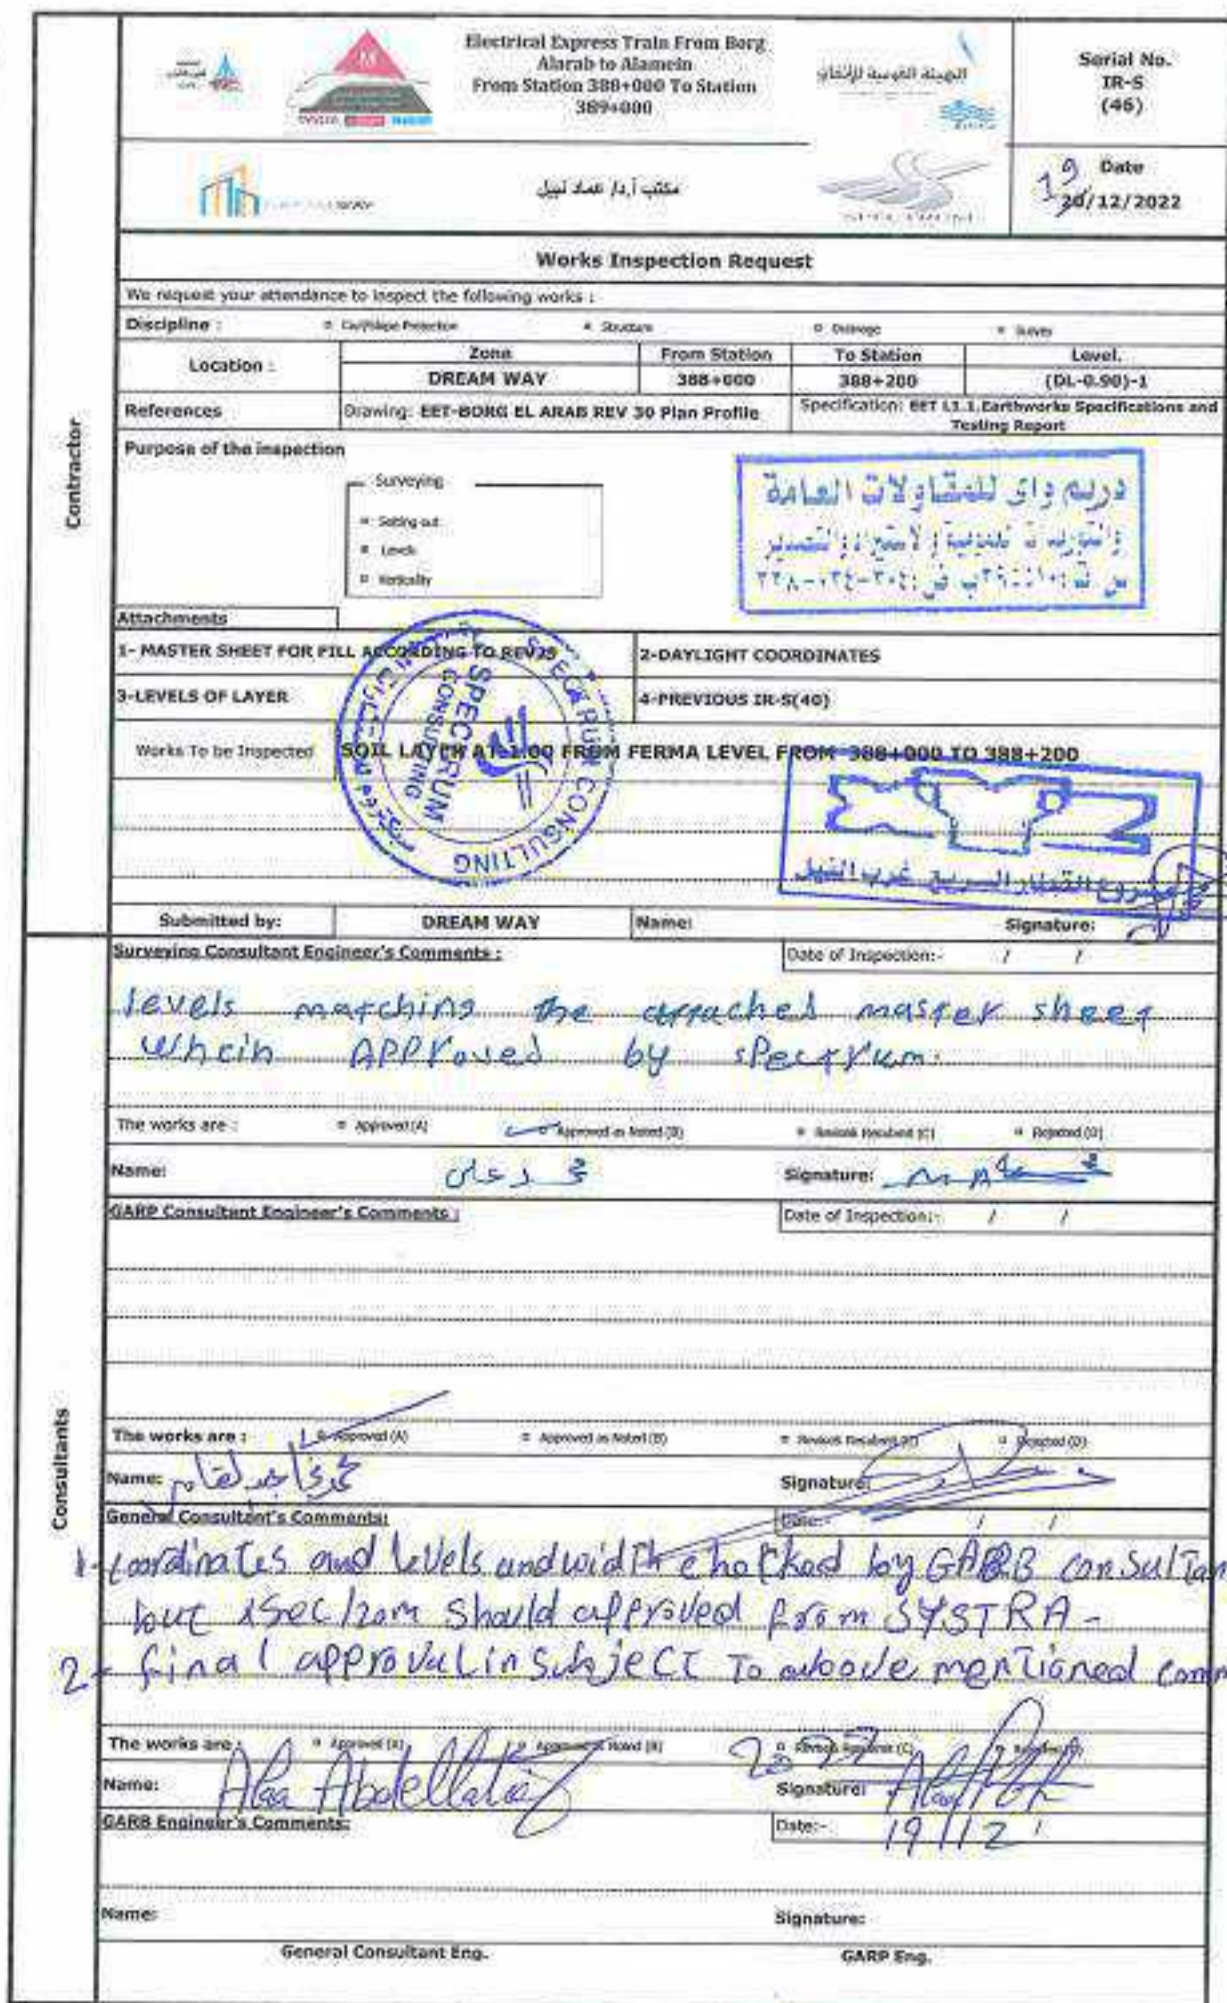 Electrical Express Train From Borg
Alarab to Alamein
From Station 388+000 To Station
389+000
الهيئة القومية للإنفاق
Serial No.
IR-S
(46)
مكتب أ.د/ عماد نبيل
Date
19
20/12/2022
Works Inspection Request
We request your attendance to inspect the following works :
Discipline : Structure Drainage Survey
Location : Zone From Station To Station Level.
DREAM WAY 388+000 388+200 (DL-0.90)-1
References Drawing: EET-BORG EL ARAB REV 30 Plan Profile Specification: EET L1.1.Earthworks Specifications and
Testing Report
Purpose of the inspection
Surveying
Setting out
Levels
Verticality
دريم واى للمقاولات العامة
Attachments
1- MASTER SHEET FOR FILL ACCORDING TO REV 2-DAYLIGHT COORDINATES
3-LEVELS OF LAYER 4-PREVIOUS IR-S(40)
SPECTRUM CONSULTING
SPECTRUM
CONSULTING
Works To be Inspected SOIL LAYER AT-1.00 FROM FERMA LEVEL FROM 388+000 TO 388+200
مشروع القطار السريع غرب النيل
Submitted by: DREAM WAY Name: Signature:
Contractor
Surveying Consultant Engineer's Comments : Date of Inspection:- / /
levels matching the attached master sheet
Whcih APProved by sPectrum.
The works are : Approved (A) Approved as Noted (B) Revise& Resubmit (C) Rejected (D)
Name: Signature:
GARP Consultant Engineer's Comments : Date of Inspection:- / /
The works are : Approved (A) Approved as Noted (B) Rejected (D)
Name: Signature:
Consultants
General Consultant's Comments: Date:- / /
1- coordinates and levels and width checked by GARB consultan
but should approved from SYSTRA-
2- final approval in subject To above mentioned comm
The works are : Approved (A) Approved as Noted (B)
Name: Alaa Abdellatif Signature:
GARB Engineer's Comments: Date:- 19/12 /
Name: Signature:
General Consultant Eng. GARP Eng.